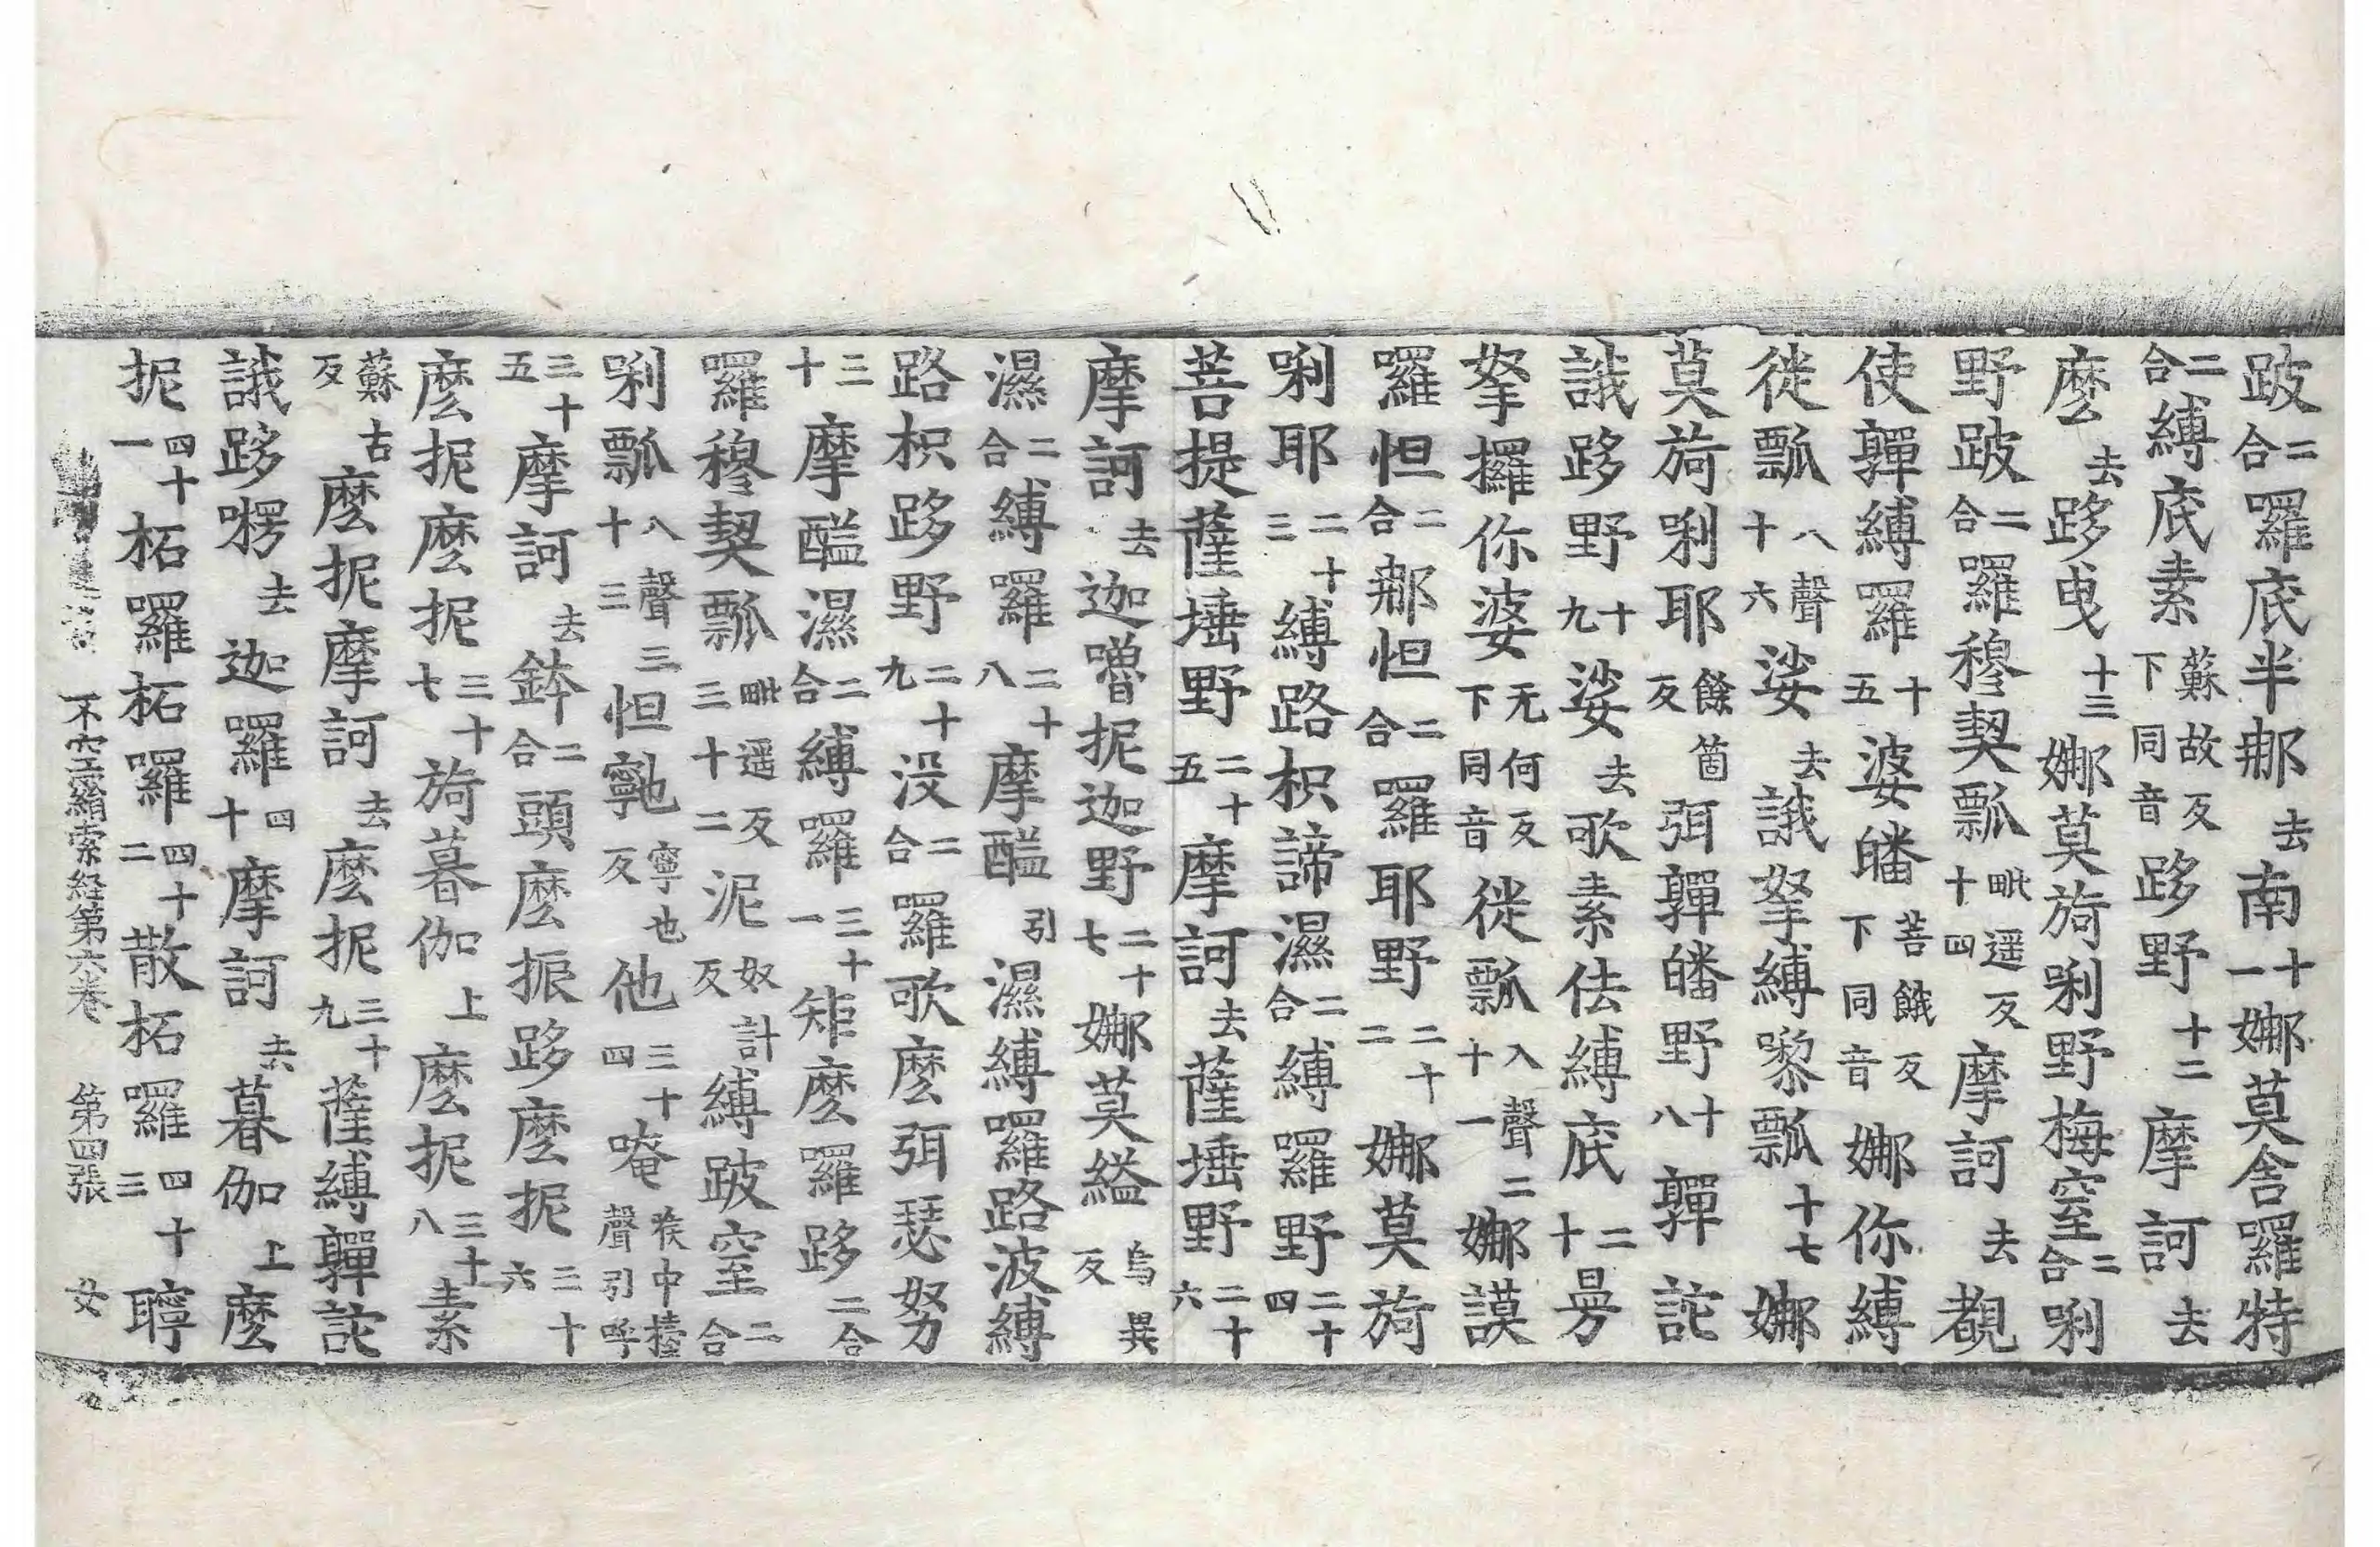 跛二合囉底半那去南十一娜莫舍囉特
二合縛底素蘇故反下同音跢野十二摩訶去
麼去跢曳十三娜莫旖唎野梅窒二合唎
野跛二合羅穆契瓢毗遥反十四摩訶去覩
使鸅縛羅十五婆皤菩餓反下同音娜你縛
徙瓢八聲十六娑去誐拏縛嚟瓢十七娜
莫旖唎耶餘箇反弭鸅皤野十八鸅詑
誐跢野十九娑去歌素佉縛底二十曼
拏攞你婆无何反下同音徙瓢入聲二十一娜謨
囉怛二合那怛二合羅耶野二十二娜莫旖
唎耶二十三縛路枳諦濕二合縛羅野二十四
菩提薩埵野二十五摩訶去薩埵野二十六
摩訶去迦嚕抳迦野二十七娜莫縊烏異反
濕二合縛羅二十八摩醯引濕縛羅路波縛
路枳跢野二十九没二合羅歌麼弭瑟努
三十摩醯濕二合縛羅三十一矩麼羅跢二合
囉穆契瓢毗遥反三十二泥奴計反縛跛窒二合
唎瓢八聲三十三怛寧也寧也反他三十四唵喉中擡聲引呼
三十五摩訶去鉢二合頭麼振跢麼抳三十六
麼抳麼抳三十七旖暮伽上麼抳三十八素
蘇古反麼抳摩訶去麼抳三十九薩縛鸅詑
誐跢㘄去迦羅四十摩訶去暮伽上麼
抳四十一柘羅柘羅四十二散柘羅四十三聹
不空羂索経第六卷　第四張　女